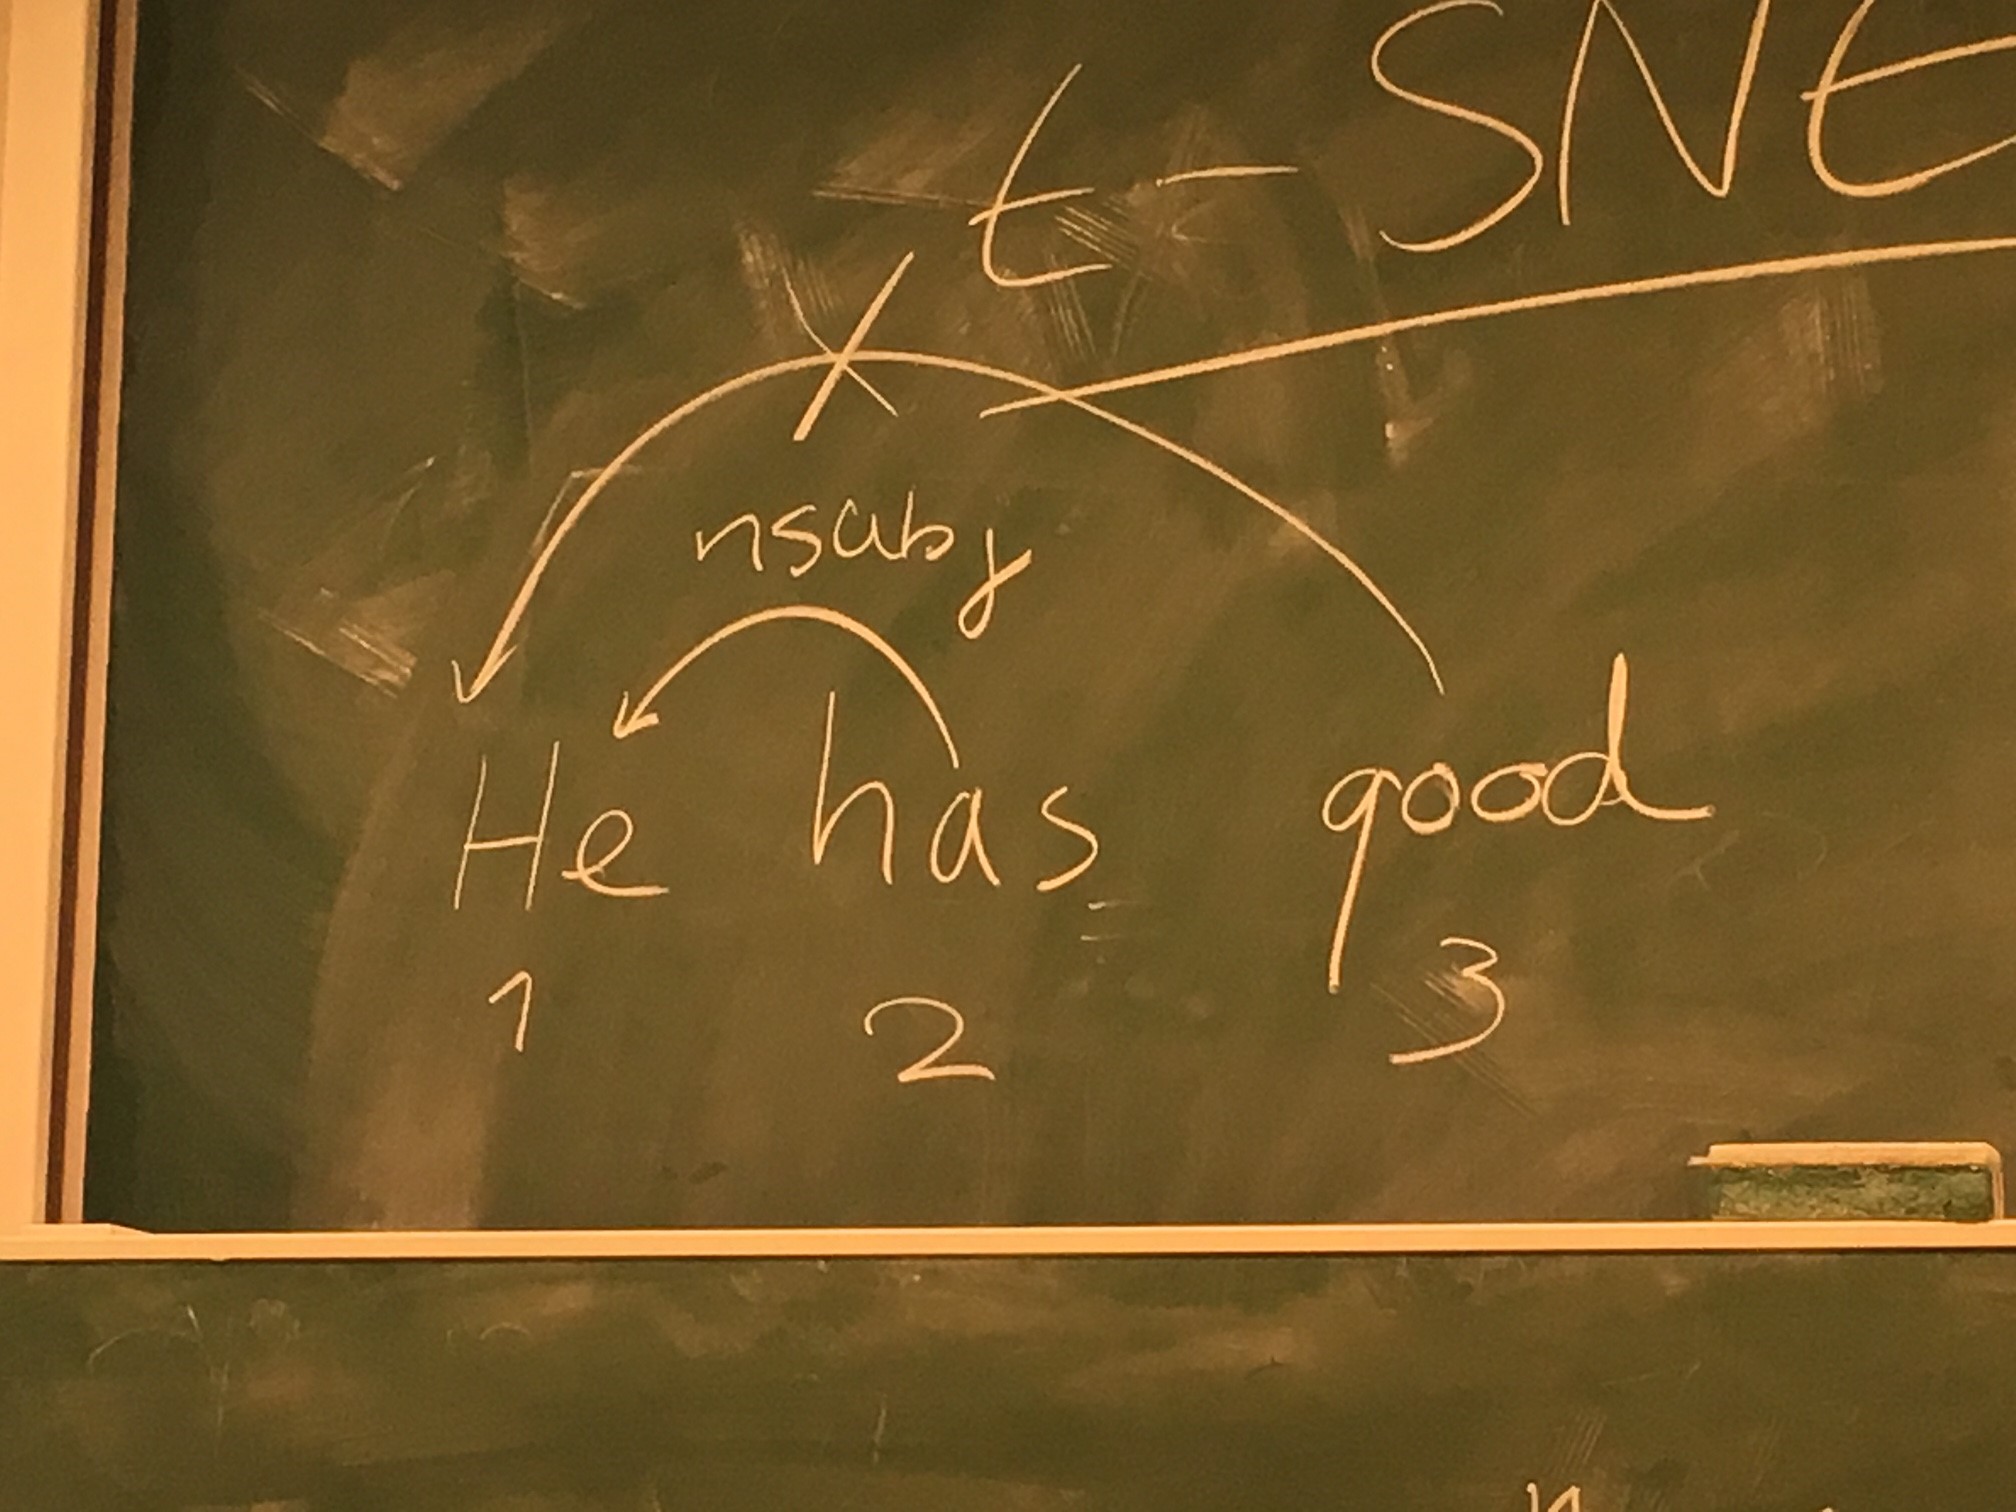 t-SNE
X
nsubj
He has good
1 2 3